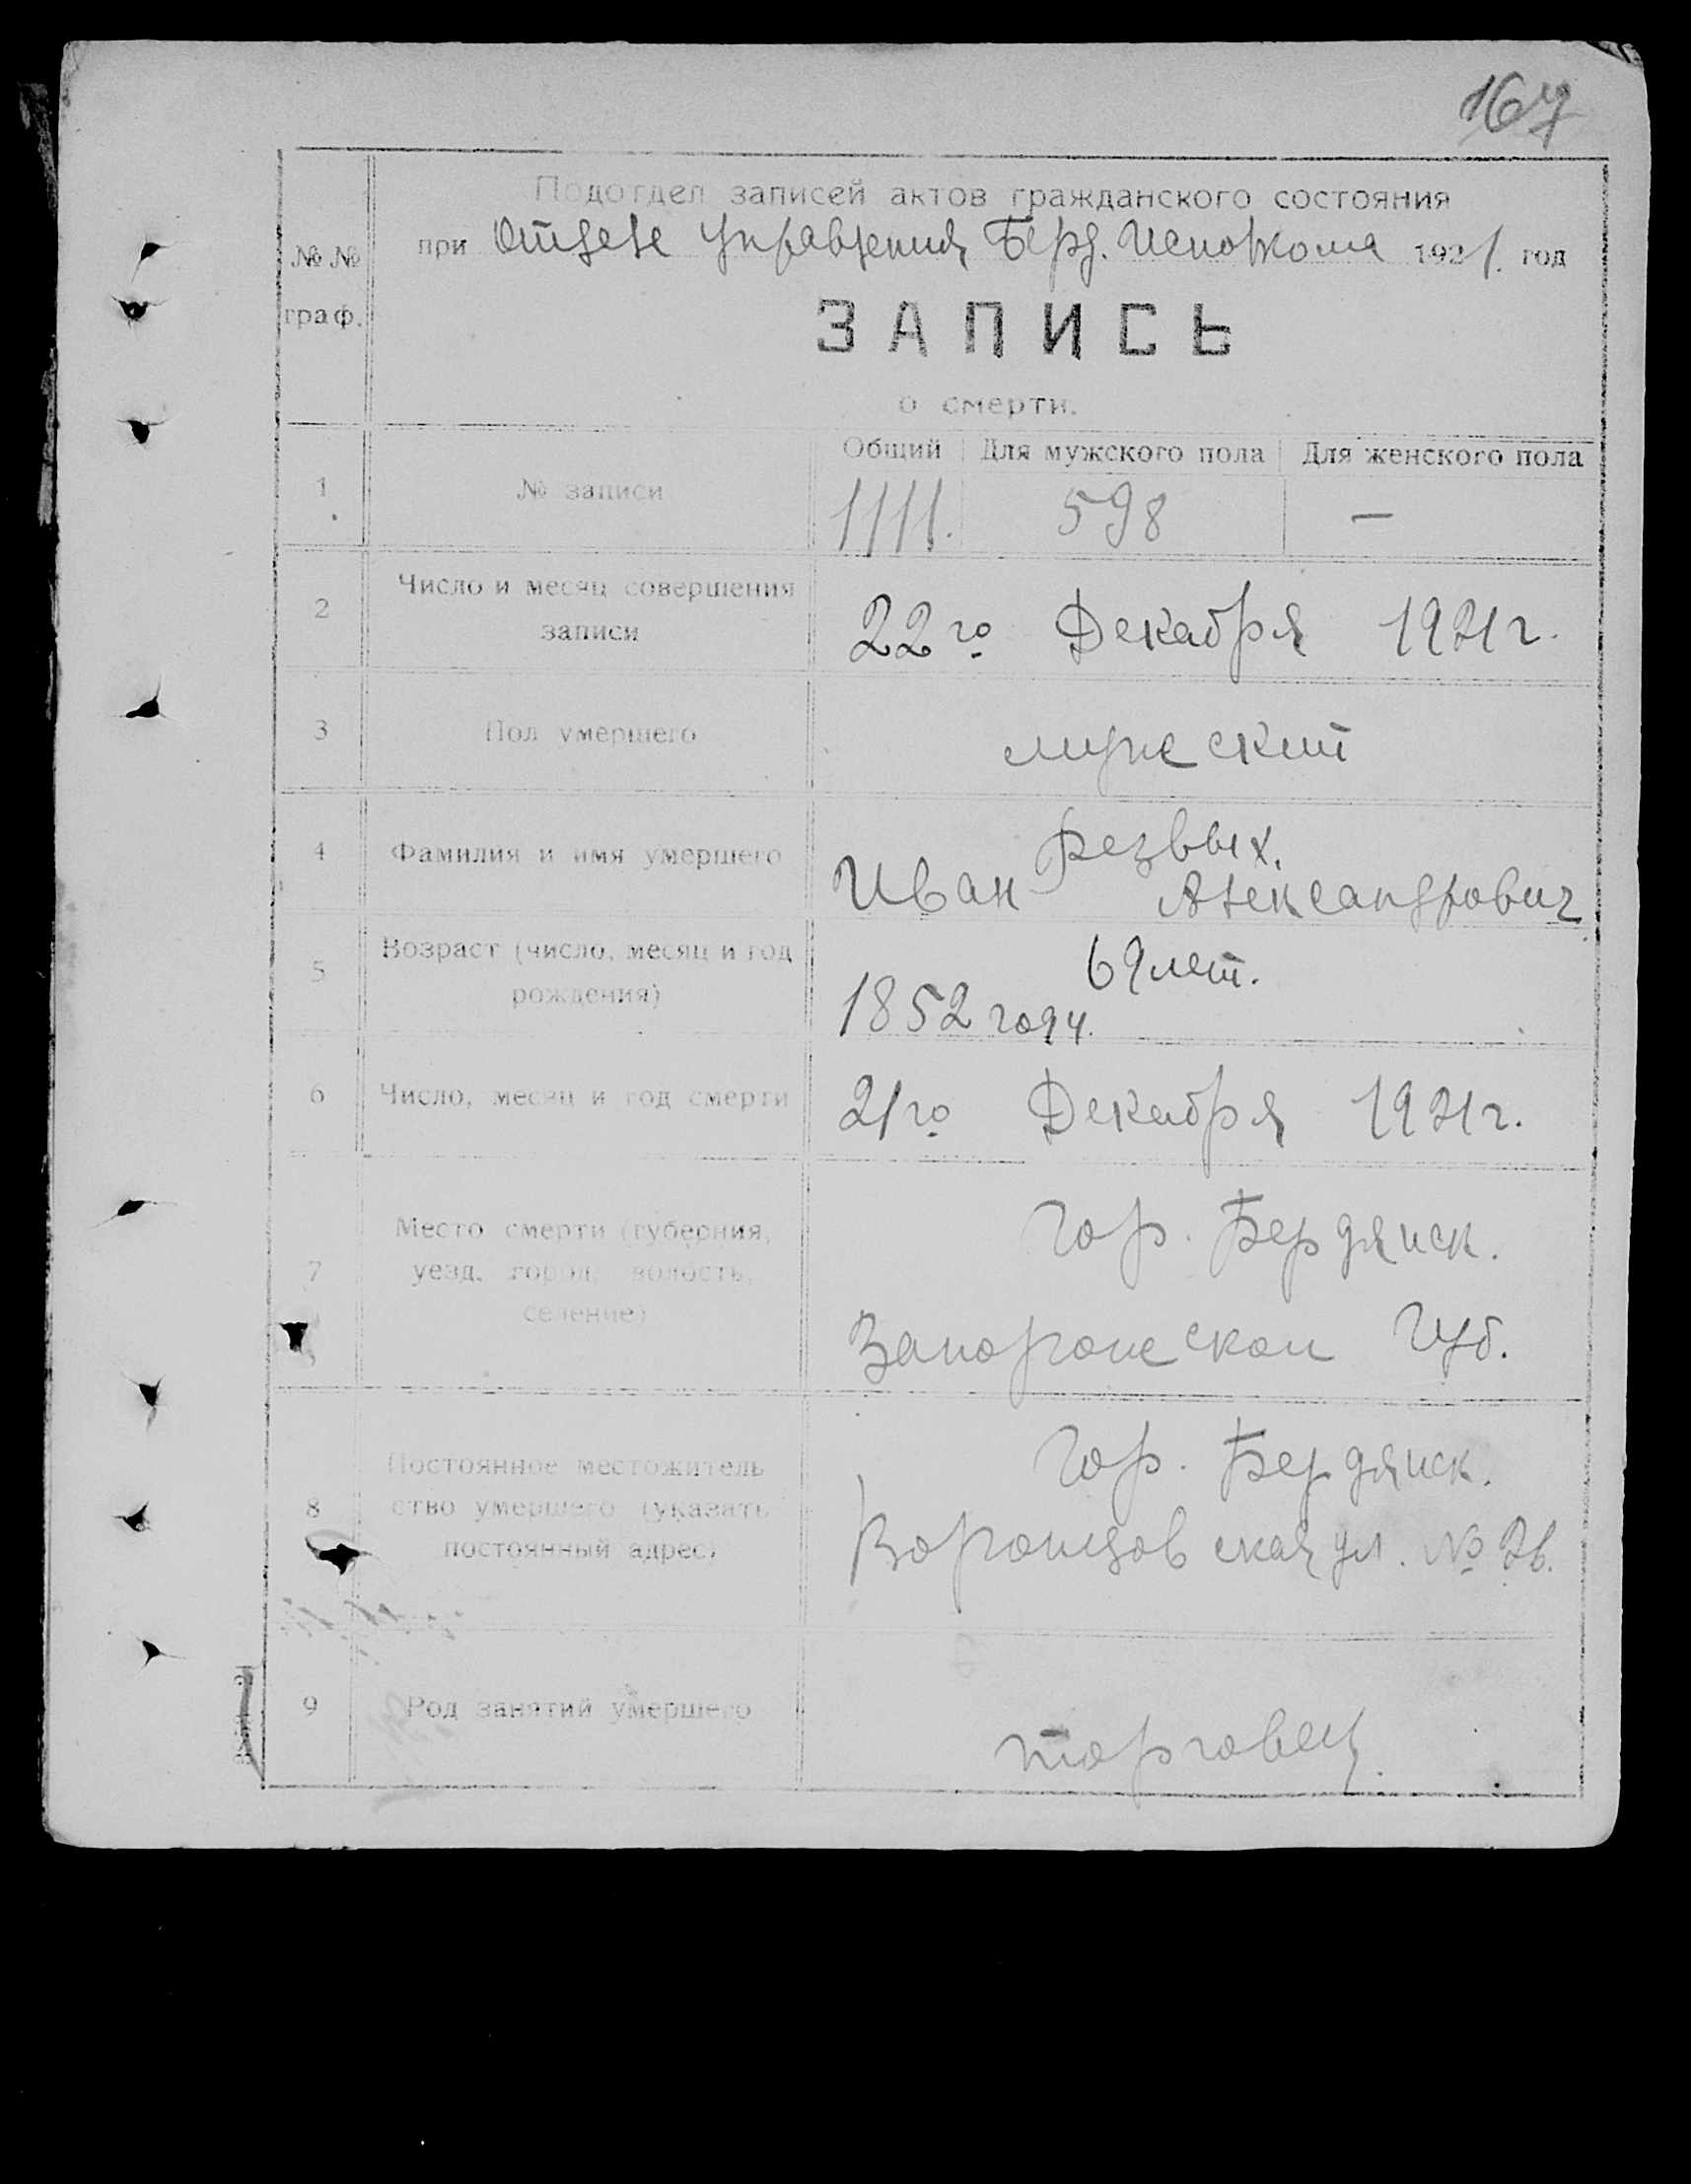 167
Подотдел записей актов гражданского состояния
№№ граф.
при Отделе Управления Берд. Исполкома 1921. год
ЗАПИСЬ
о смерти.
Общий Для мужского пола Для женского пола
1 № записи 1111. 598 —
2 Число и месяц совершения
записи
22го Декабря 1921г.
3 Пол умершего мужеский
4 Фамилия и имя умершего
Резвых.
Иван Александрович
5 Возраст (число, месяц и год
рождения)
69 лет.
1852 году.
6 Число, месяц и год смерти 21го Декабря 1921г.
7 Место смерти (губерния,
уезд, город, волость,
селение)
Гор. Бердянск.
Запорожской Губ.
8 Постоянное местожитель
ство умершего (указать
постоянный адрес)
Гор. Бердянск.
Воронцовская ул. № 26.
9 Род занятий умершего
торговец.